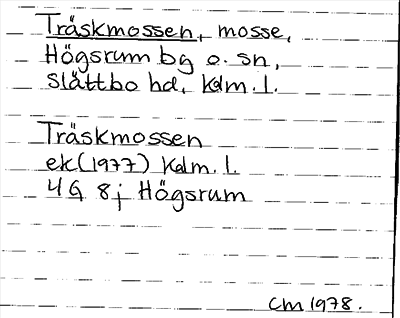 Träskmossen, mosse,
Högsrum bg o. sn,
Slättbo hd, Kalm. l.
Träskmossen
ek(1977) Kalm. l.
4G 8j Högsrum
CM 1978.